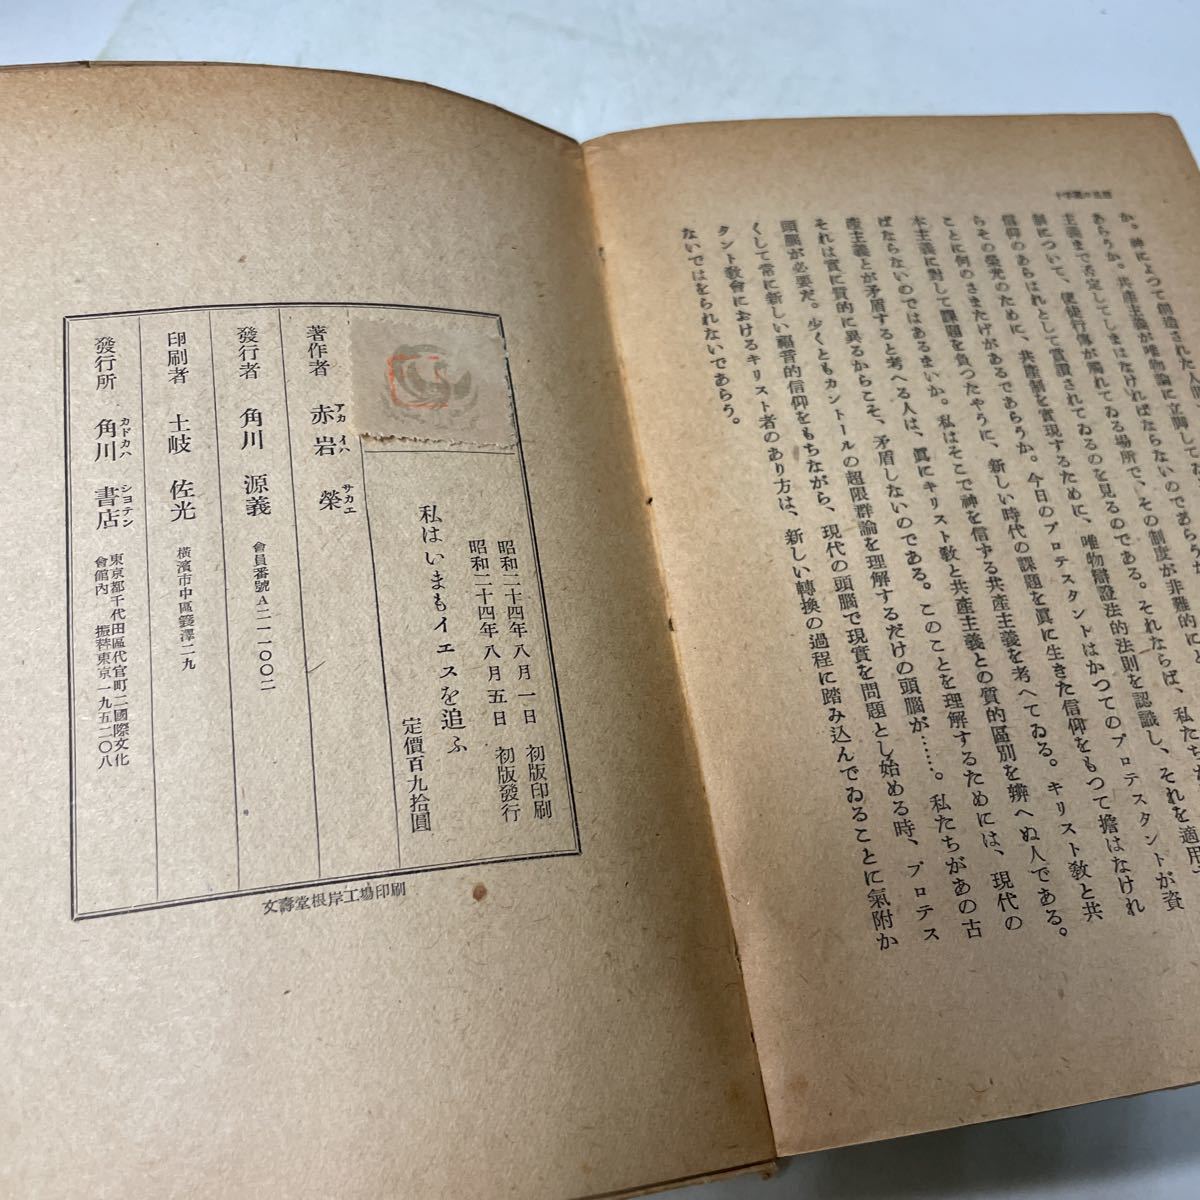 十字架の思想
か。神によつて創造された人間
あらうか。共産主義が唯物論に立脚してゐ
主義まで否定してしまはなければならないのであらうか
制について、使徒行傳が觸れてゐる場所で、その制度が非難的にと
信仰のあらはれとして賞讃されてゐるのを見るのである。それならば、私たちが
らその榮光のために、共産制を實現するために、唯物辯證法的法則を認識し、それを適用
ことに何のさまたげがあるであらうか。今日のプロテスタントはかつてのプロテスタントが資
本主義に對して課題を負つたやうに、新しい時代の課題を眞に生きた信仰をもつて擔はなけれ
ばならないのではあるまいか。私はそこで神を信ずる共産主義を考へてゐる。キリスト教と共
産主義とが矛盾すると考へる人は、眞にキリスト教と共産主義との質的區別を辨へぬ人である。
それは實に質的に異るからこそ、矛盾しないのである。このことを理解するためには、現代の
頭腦が必要だ。少くともカントールの超限群論を理解するだけの頭腦が……。私たちがあの古
くして常に新しい福音的信仰をもちながら、現代の頭腦で現實を問題とし始める時、プロテス
タント教會におけるキリスト者のあり方は、新しい轉換の過程に踏み込んでゐることに氣附か
ないではをられないであらう。
昭和二十四年八月一日 初版印刷
昭和二十四年八月五日 初版發行
私はいまもイエスを追ふ
定價百九拾圓
著作者 赤岩 榮
アカ イハ サカエ
發行者 角川 源義
會員番號A二一一〇〇二
印刷者 土岐 佐光
橫濱市中區簑澤二九
發行所 角川 書店
カドカハ シヨテン
東京都千代田區代官町二國際文化
會館內 振替東京一九五二〇八
文壽堂根岸工場印刷